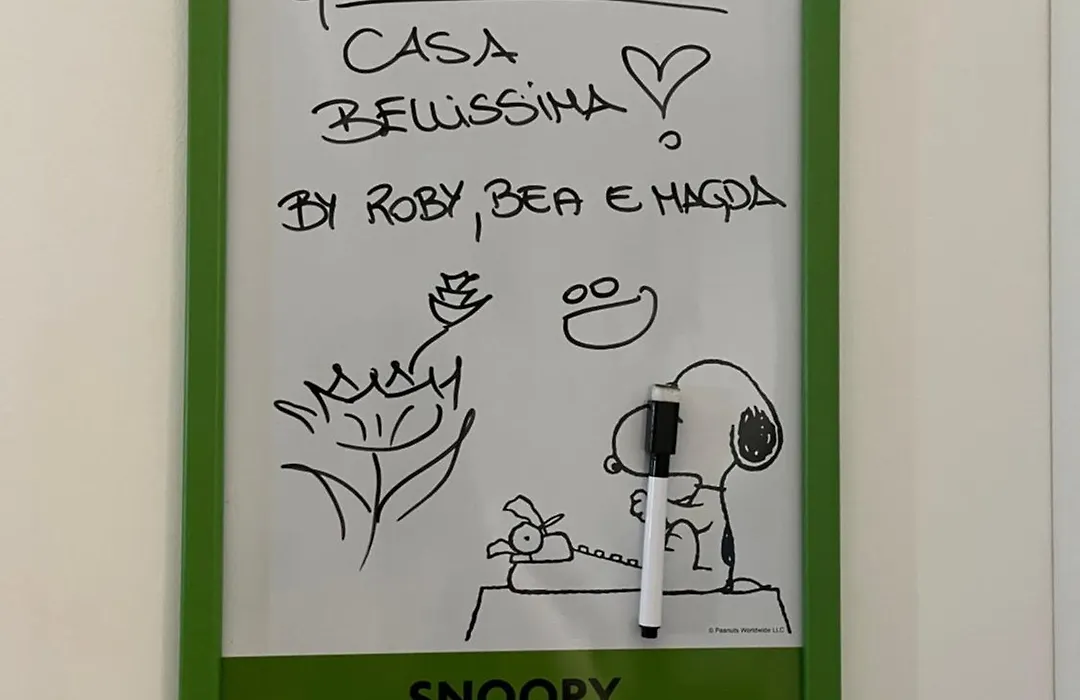 CASA
BELLiSSiMA
BY ROBY, BEA E MAGDA
© Peanuts Worldwide LLC
SNOOPY